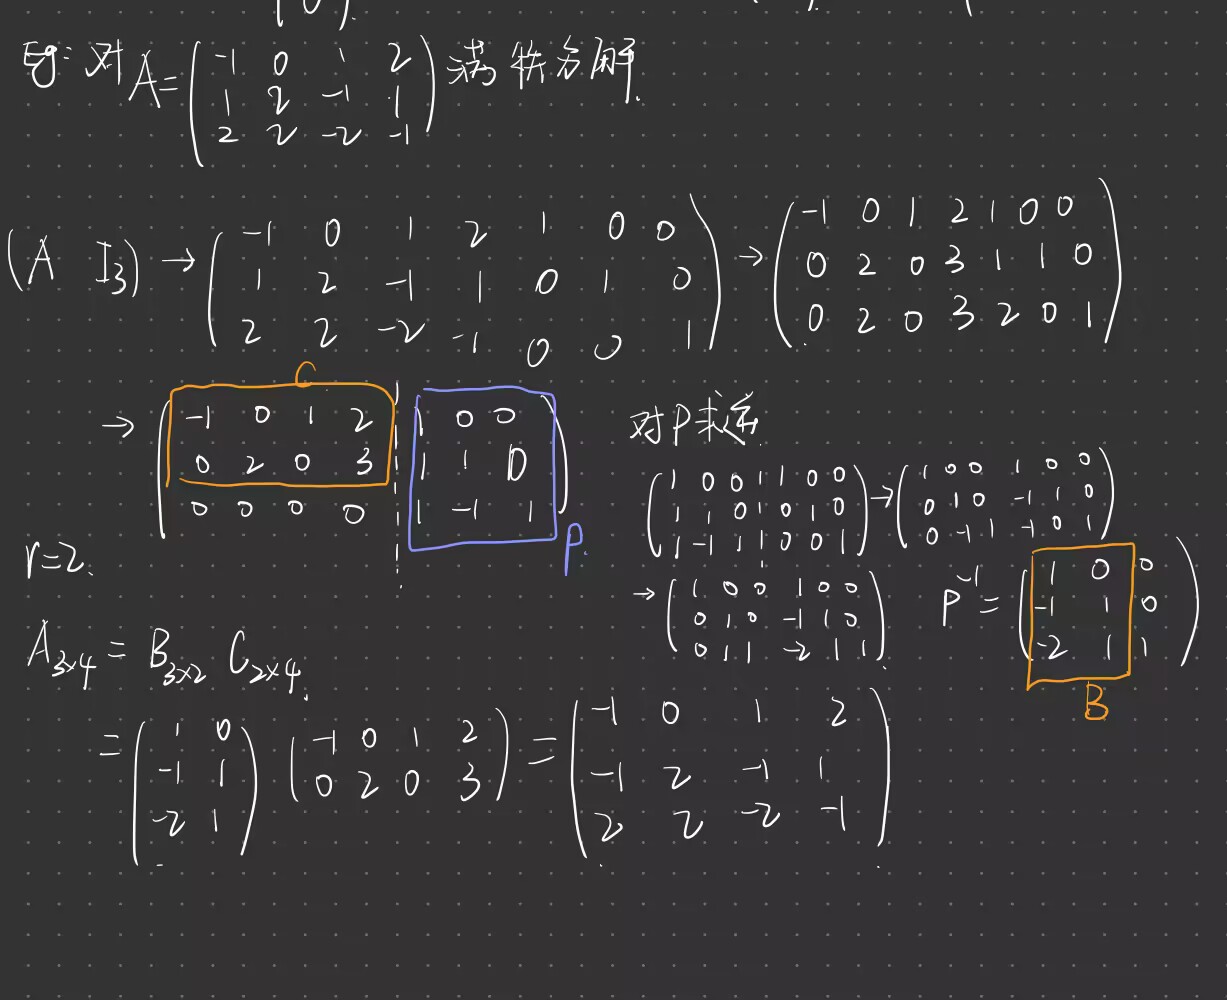 Eg: 对 A = ( -1 0 1 2
1 2 -1 1
2 2 -2 -1 ) 满秩分解.
(A I3) → ( -1 0 1 2 1 0 0
1 2 -1 1 0 1 0
2 2 -2 -1 0 0 1 )
→ ( -1 0 1 2 1 0 0
0 2 0 3 1 1 0
0 2 0 3 2 0 1 )
C
→ ( -1 0 1 2 1 0 0
0 2 0 3 1 1 0
0 0 0 0 1 -1 1 )
P.
r=2.
对P求逆.
( 1 0 0 1 1 0 0
1 1 0 1 0 1 0
1 -1 1 1 0 0 1 )
→ ( 1 0 0 1 0 0
0 1 0 -1 1 0
0 -1 1 -1 0 1 )
→ ( 1 0 0 1 0 0
0 1 0 -1 1 0
0 1 1 -2 1 1 ).
P-1 = ( 1 0 0
-1 1 0
-2 1 1 )
B
A3×4 = B3×2 C2×4.
= ( 1 0
-1 1
-2 1 )
( -1 0 1 2
0 2 0 3 )
= ( -1 0 1 2
-1 2 -1 1
2 2 -2 -1 )